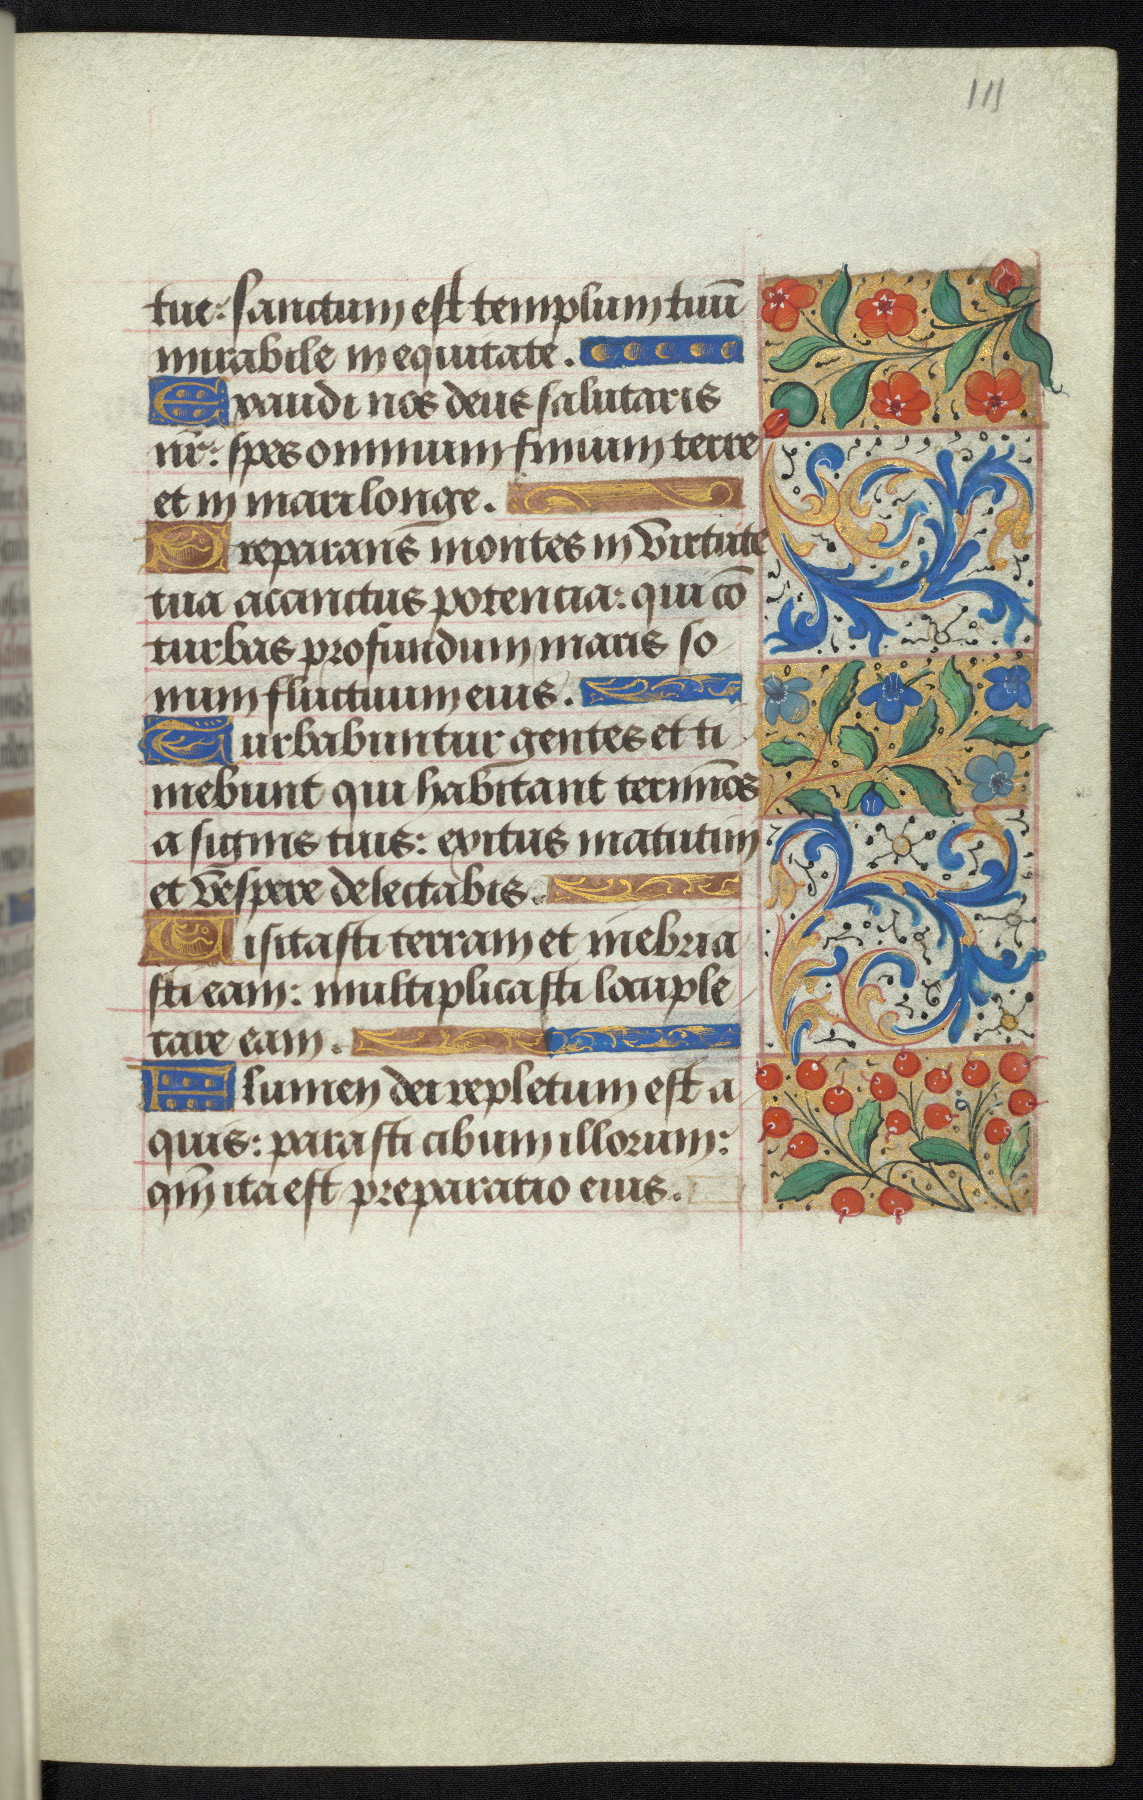 111
tue: sanctum est templum tuū
mirabile in equitate.
Exaudi nos deus salutaris
nr̄: spes omnium finium terre
et in mari longe.
Preparans montes in virtute
tua accinctus potencia: qui cō
turbas profundum maris so
num fluctuum eius.
Turbabuntur gentes et ti
mebunt qui habitant terminos
a signis tuis: exitus matutini
et vespere delectabis.
Uisitasti terram et inebria
sti eam: multiplicasti locuple
tare eam.
Flumen dei repletum est a
quis: parasti cibum illorum:
qm̄ ita est preparatio eius.